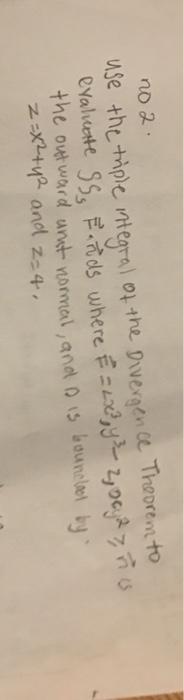 no 2.
use the triple integral of the Divergence Theorem to
evaluate SS_s F⃗.n⃗ds where F⃗ = <x³, y³ - z, xy² > n⃗ is
the outward unit normal, and D is bounded by.
z=x²+y² and z=4.